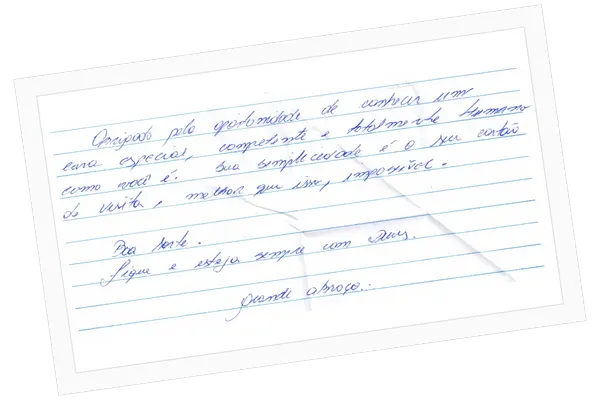 Obrigado pela oportunidade de conhecer um
cara especial, competente e totalmente humano
como você é. Sua simplicidade é o seu cartão
de visita, melhor que isso, impossível.
Boa sorte.
Fique e esteja sempre com Deus.
Grande abraço..